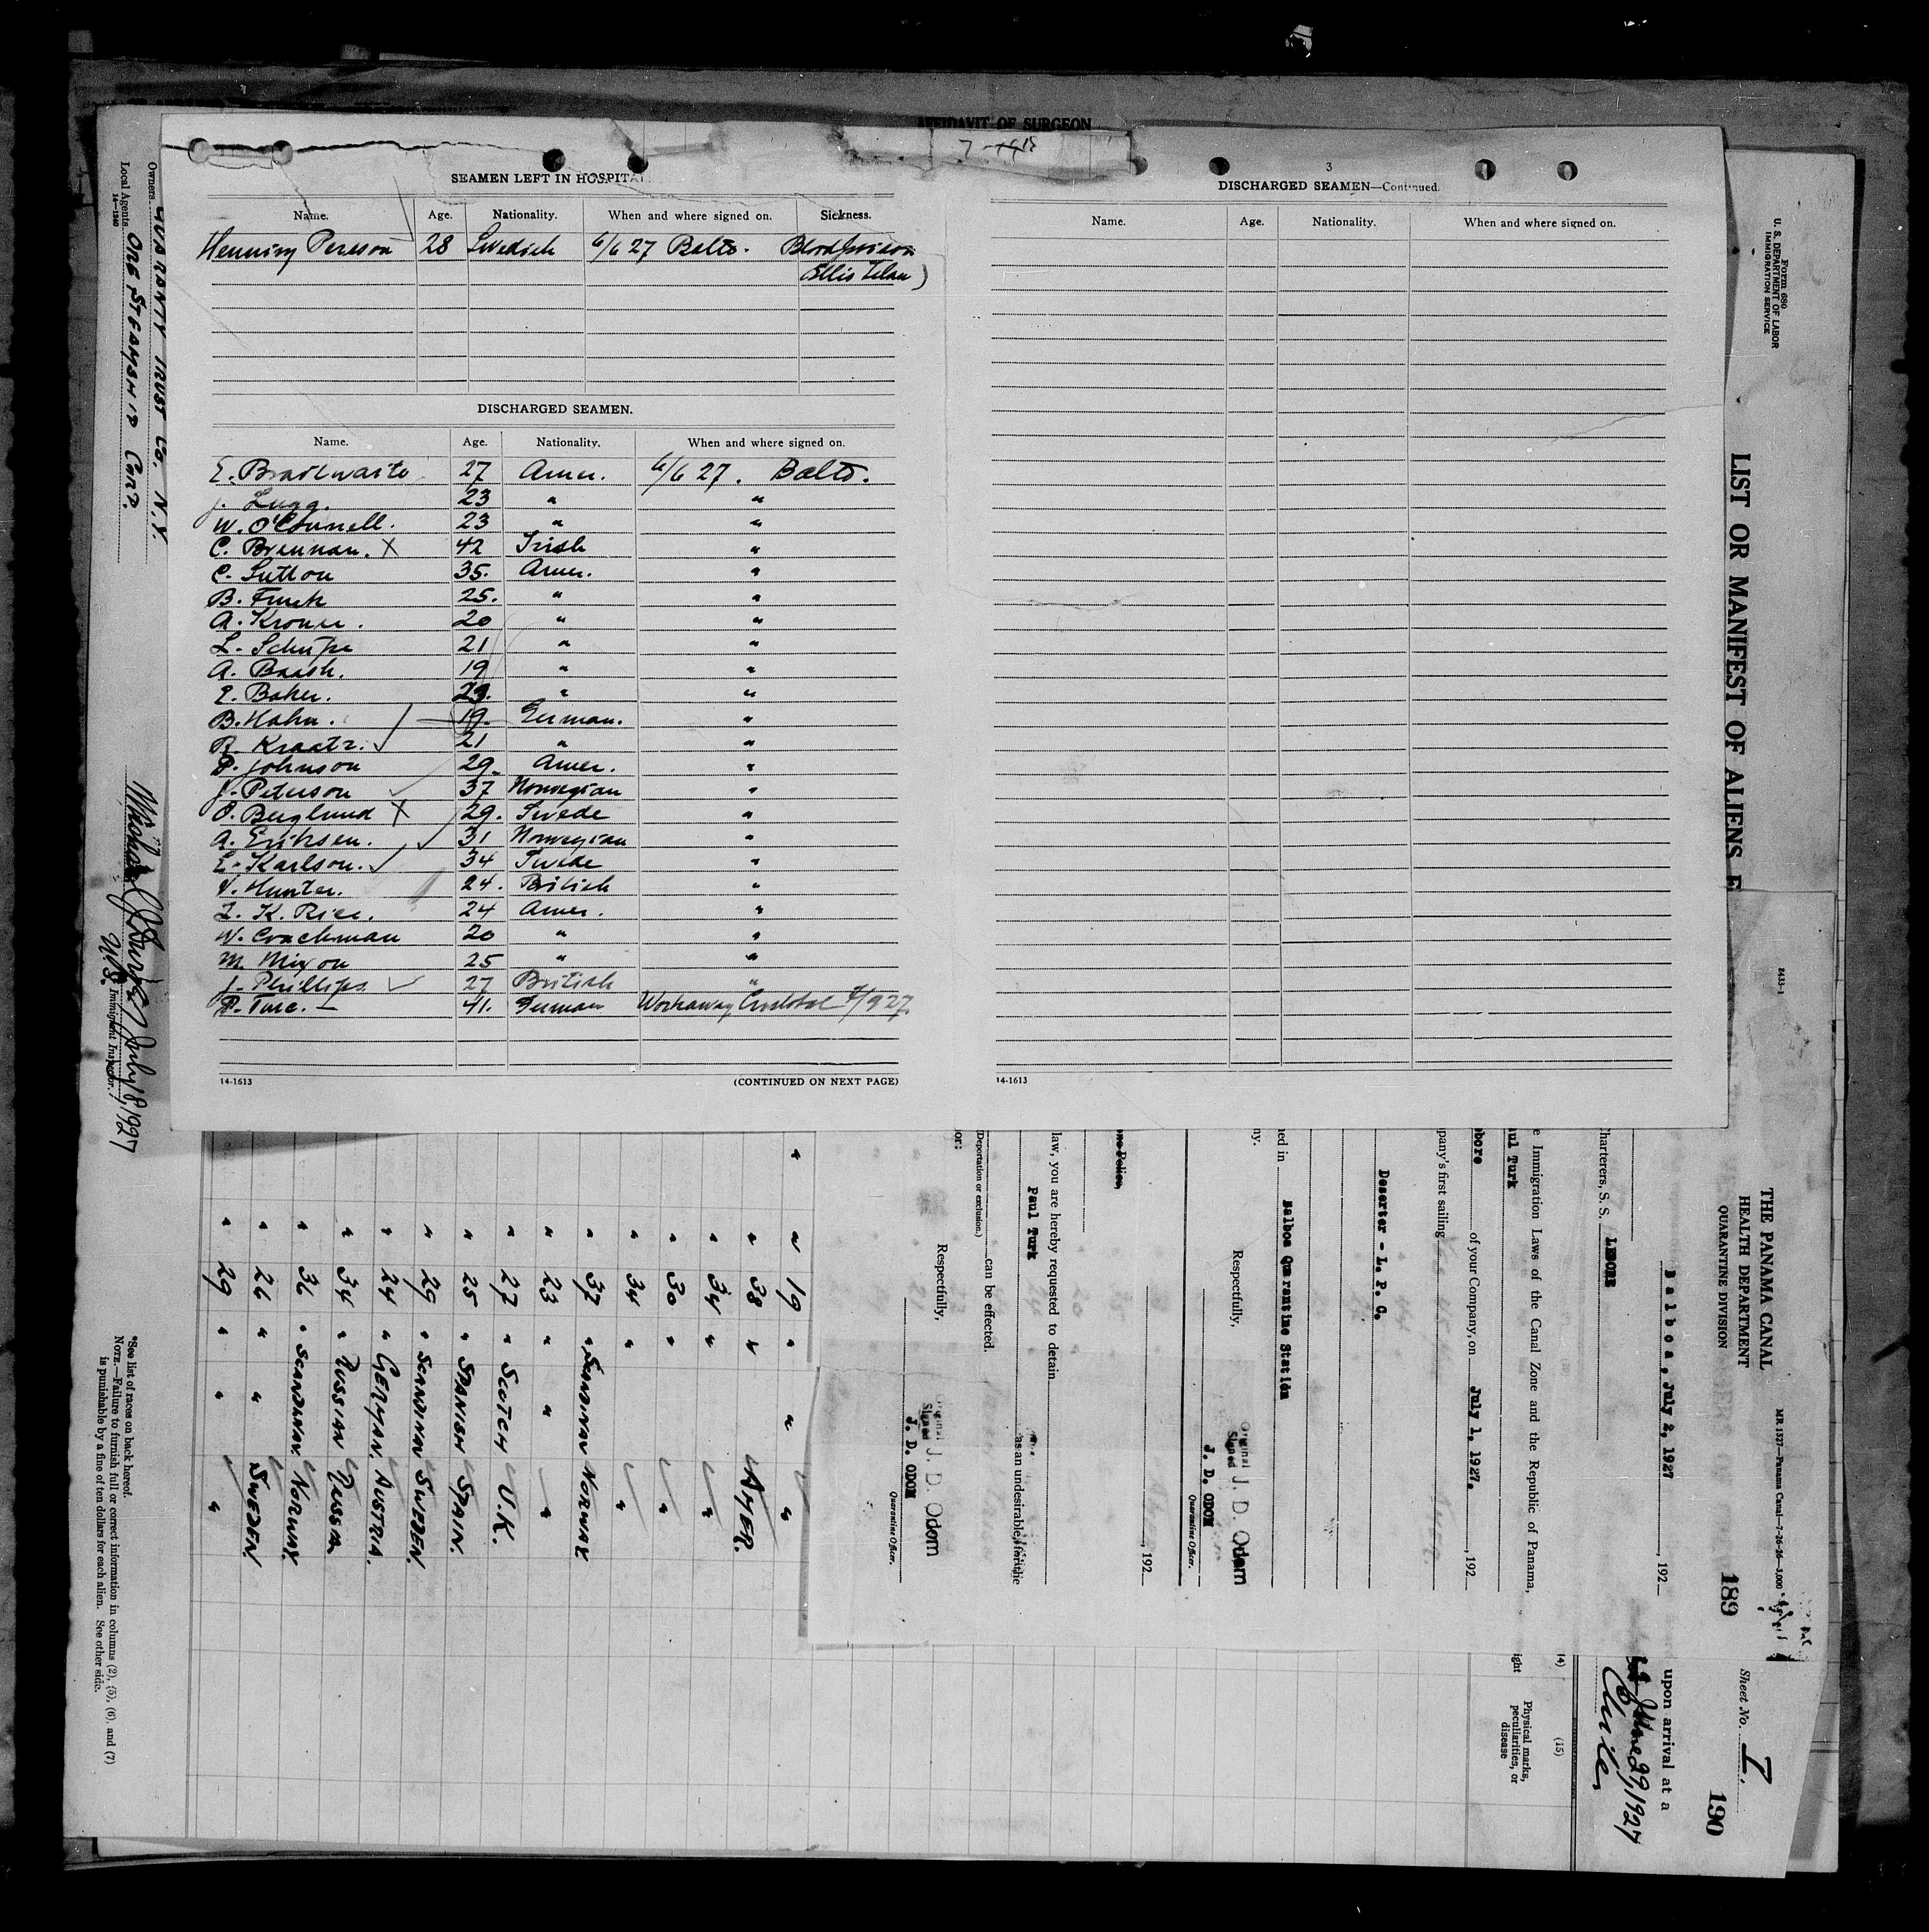 AFFIDAVIT OF SURGEON
SEAMEN LEFT IN HOSPITAL
Name. Age. Nationality. When and where signed on. Sickness.
Henning Persson 28 Swedish 6/6 27 Balto. Blood poison
Ellis Islan)
DISCHARGED SEAMEN.
Name. Age. Nationality. When and where signed on.
E. Brathwaite 27 Amer. 6/6 27. Balto.
J. Lugg. 23 " "
W. O'Connell. 23 " "
C. Brennan. X 42 Irish "
C. Sutton 35. Amer. "
B. Funk 25. " "
A. Kroner. 20 " "
L. Schupe 21 " "
A. Baash. 19 " "
E. Baker. 23. " "
B. Hahn. 19. German. "
R. Kraatz. 21 " "
P. Johnson 29. Amer. "
J. Peterson 37 Norwegian "
O. Berglund X 29. Swede "
A. Eriksen. 31 Norwegian "
E. Karlson. 34 Swede "
V. Hunter. 24. British "
L. K. Rice. 24 Amer. "
W. Coachman 20 " "
M. Mixon 25 " "
J. Phillips 27 British "
P. Turc. — 41. German Workaway Cristobal 7/9 27.
14-1613 (CONTINUED ON NEXT PAGE)
3
DISCHARGED SEAMEN—Continued.
Name. Age. Nationality. When and where signed on.
14-1613
Owners GUARANTY TRUST CO. N.Y.
Local Agents ORE STEAMSHIP CORP.
14-1240
July 18, 1927
U.S. Immigrant Inspector.
Form 680
U. S. DEPARTMENT OF LABOR
IMMIGRATION SERVICE
LIST OR MANIFEST OF ALIENS E
8433-1
THE PANAMA CANAL
HEALTH DEPARTMENT
QUARANTINE DIVISION
MR 1527—Panama Canal—7-26-26—3,000
189
Balboa, July 2, 1927, 192
Charterers, S. S. LEBORE
e Immigration Laws of the Canal Zone and the Republic of Panama,
aul Turk
bore of your Company, on July 1, 1927. , 192
pany's first sailing
Deserter - L. P. C.
ned in Balboa Quarantine Station
ny.
Respectfully,
Original Signed J. D. Odom
J. D. ODOM
Quarantine Officer.
, 192
one Police,
law, you are hereby requested to detain
Paul Turk as an undesirable, for the
(Deportation or exclusion.) can be effected.
or:
Respectfully,
Original Signed J. D. Odom
J. D. ODOM
Quarantine Officer.
Sheet No. I.
190
upon arrival at a
June 29, 1927
Chile,
14)
ight
(15)
Physical marks, peculiarities, or disease
"
" 19 " " "
" 38 " AMER.
" 34 " "
" 30 " "
" 34 " "
" 37 " SCANDINAV NORWAY
" 23 " " "
" 27 " SCOTCH U.K.
" 25 " SPANISH SPAIN.
" 29 " SCANDINAV SWEDEN.
" 24 " GERMAN. AUSTRIA.
" 34 " RUSSIAN RUSSIA
" 36 " SCANDANAV. NORWAY.
" 26 " " SWEDEN.
" 29 " " "
*See list of races on back hereof.
NOTE.—Failure to furnish full or correct information in columns (2), (5), (6), and (7)
is punishable by a fine of ten dollars for each alien. See other side.